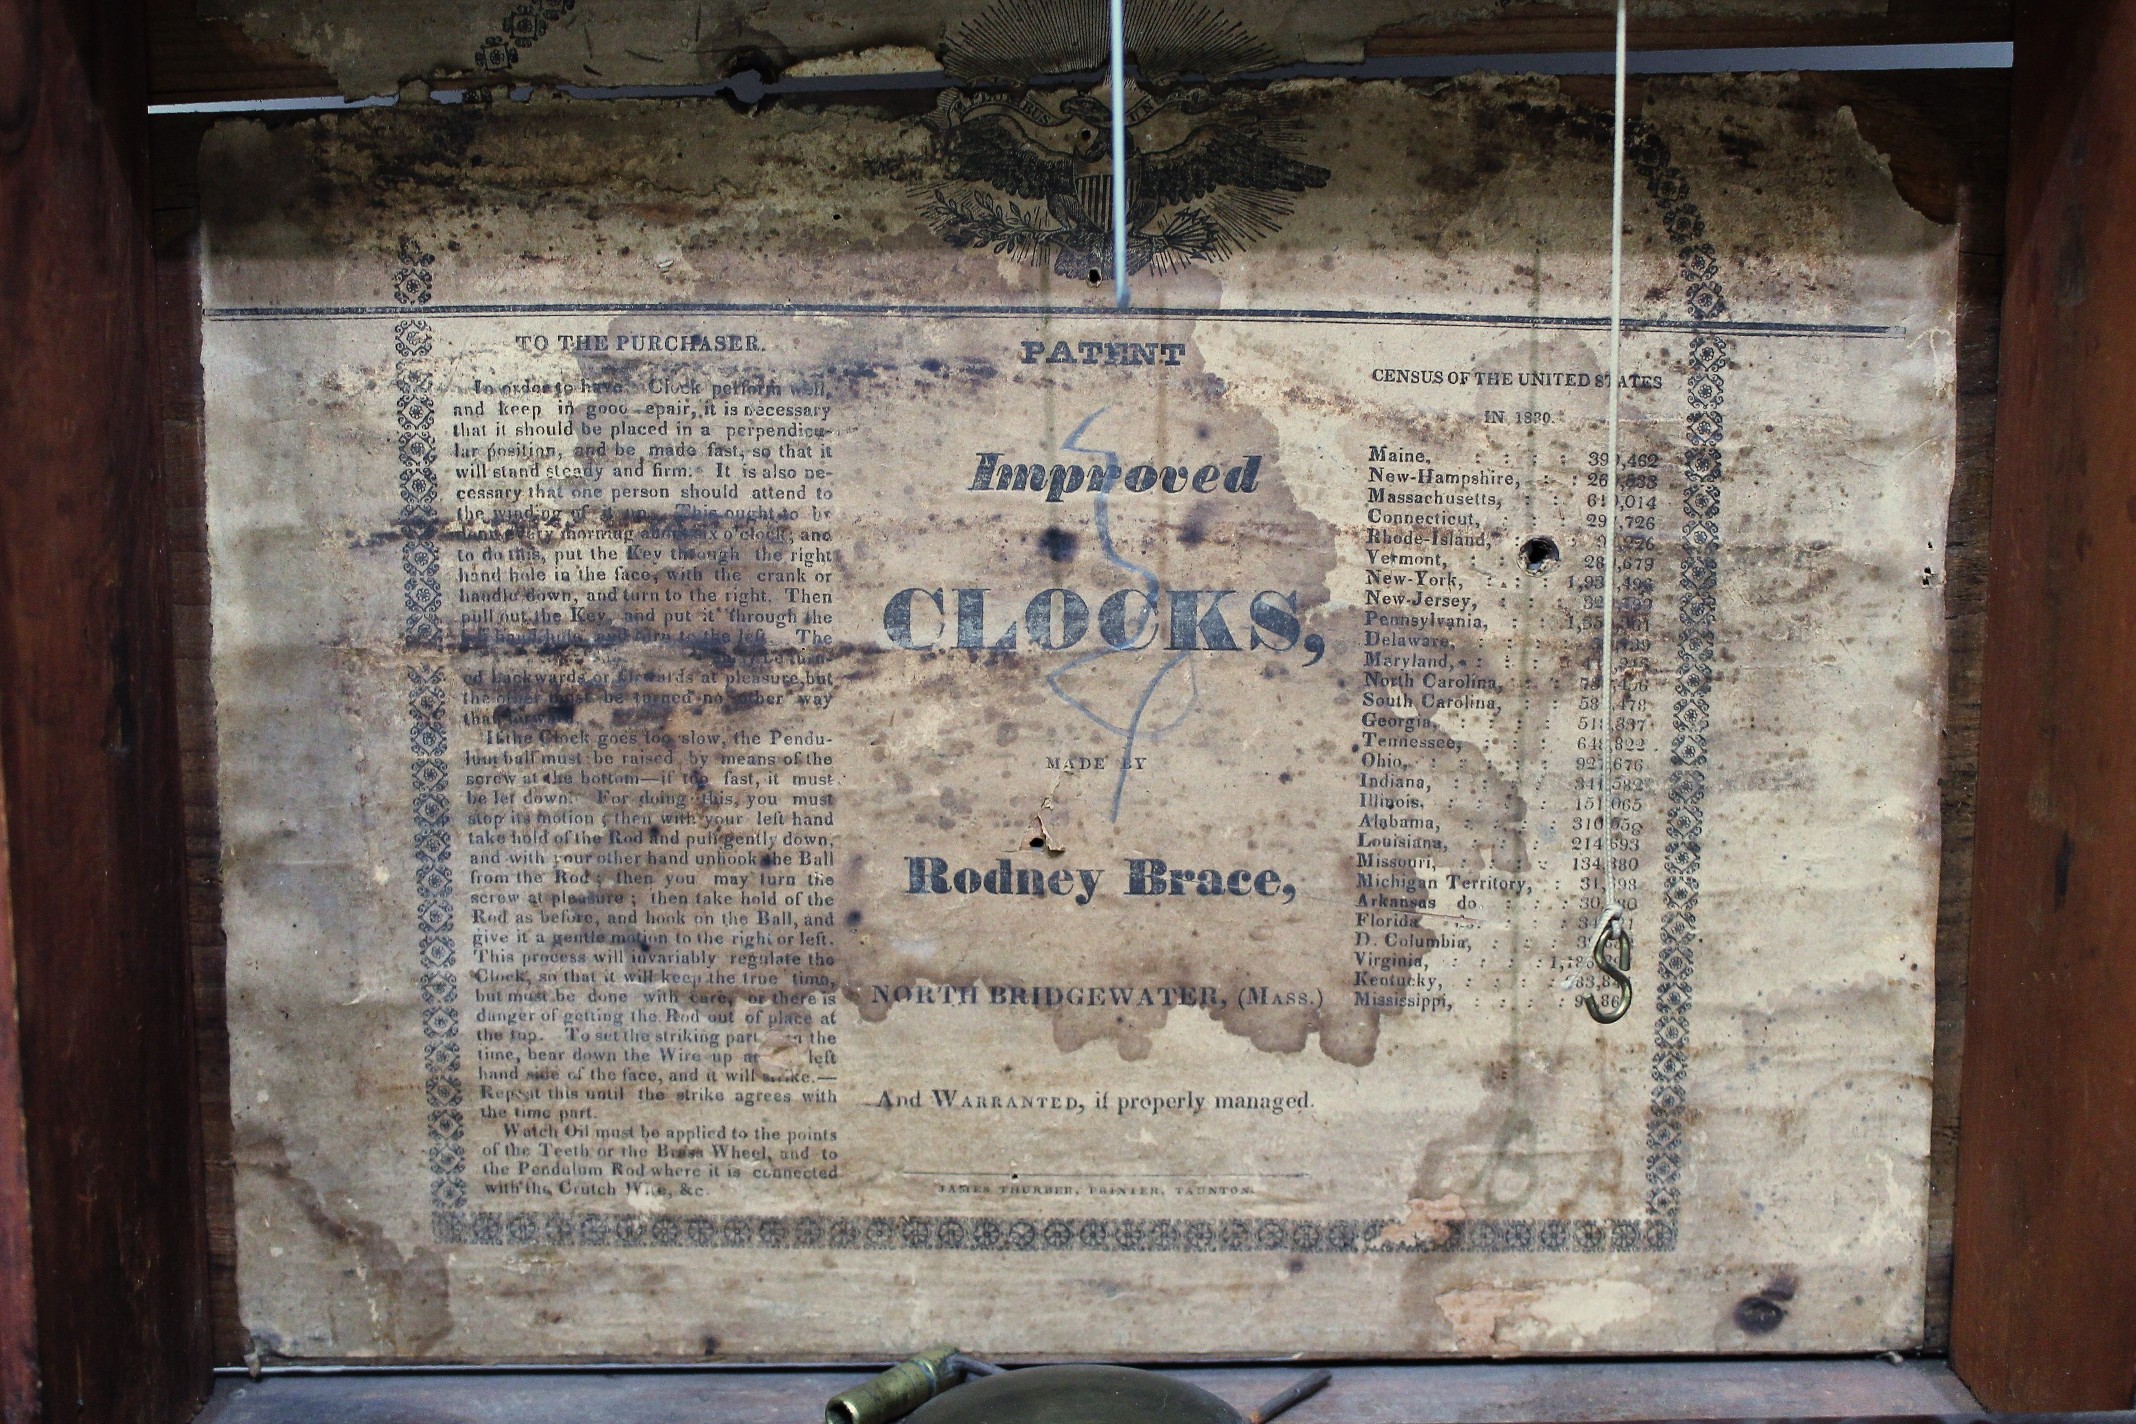 TO THE PURCHASER.
In order to have Clock perform well,
and keep in good epair, it is necessary
that it should be placed in a perpendicu-
lar position, and be made fast, so that it
will stand steady and firm. It is also ne-
cessary that one person should attend to
the winding of it up. This ought to be
done every morning about six o'clock; and
to do this, put the Key through the right
hand hole in the face, with the crank or
handle down, and turn to the right. Then
pull out the Key, and put it through the
left hand hole, and turn to the left. The
be turn-
ed backwards or forwards at pleasure, but
the other must be turned no other way
than forward.
If the Clock goes too slow, the Pendu-
lum ball must be raised by means of the
screw at the bottom—if too fast, it must
be let down. For doing this, you must
stop its motion; then with your left hand
take hold of the Rod and pull gently down,
and with your other hand unhook the Ball
from the Rod; then you may turn the
screw at pleasure; then take hold of the
Rod as before, and hook on the Ball, and
give it a gentle motion to the right or left.
This process will invariably regulate the
Clock, so that it will keep the true time,
but must be done with care, or there is
danger of getting the Rod out of place at
the top. To set the striking part the
time, bear down the Wire up at left
hand side of the face, and it will strike.—
Repeat this until the strike agrees with
the time part.
Watch Oil must be applied to the points
of the Teeth or the Brass Wheel, and to
the Pendulum Rod where it is connected
with the Crutch Wire, &c.
PATENT
Improved
CLOCKS,
MADE BY
Rodney Brace,
NORTH BRIDGEWATER, (MASS.)
And WARRANTED, if properly managed.
JAMES THURBER, PRINTER, TAUNTON.
CENSUS OF THE UNITED STATES
IN 1830.
Maine, : : : :
New-Hampshire, : :
Massachusetts, : :
Connecticut, : :
Rhode-Island, :
Vermont, : :
New-York, : :
New-Jersey, : :
Pennsylvania, :
Delaware, :
Maryland, :
North Carolina,
South Carolina,
Georgia, : : :
Tennessee, : :
Ohio, : : : :
Indiana, : : :
Illinois, : : : 151,065
Alabama, : : :
Louisiana, : :
Missouri, : : :
Michigan Territory, :
Arkansas do. : :
Florida do. : :
D. Columbia, : :
Virginia, : : :
Kentucky, : : :
Mississippi, : :